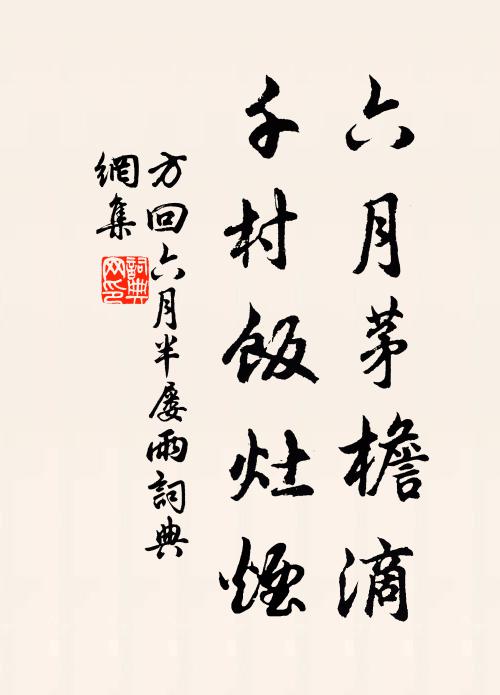 六月茅檐滴
千村飯灶煙
方回六月半屡雨詞典
網集
詞典
網印